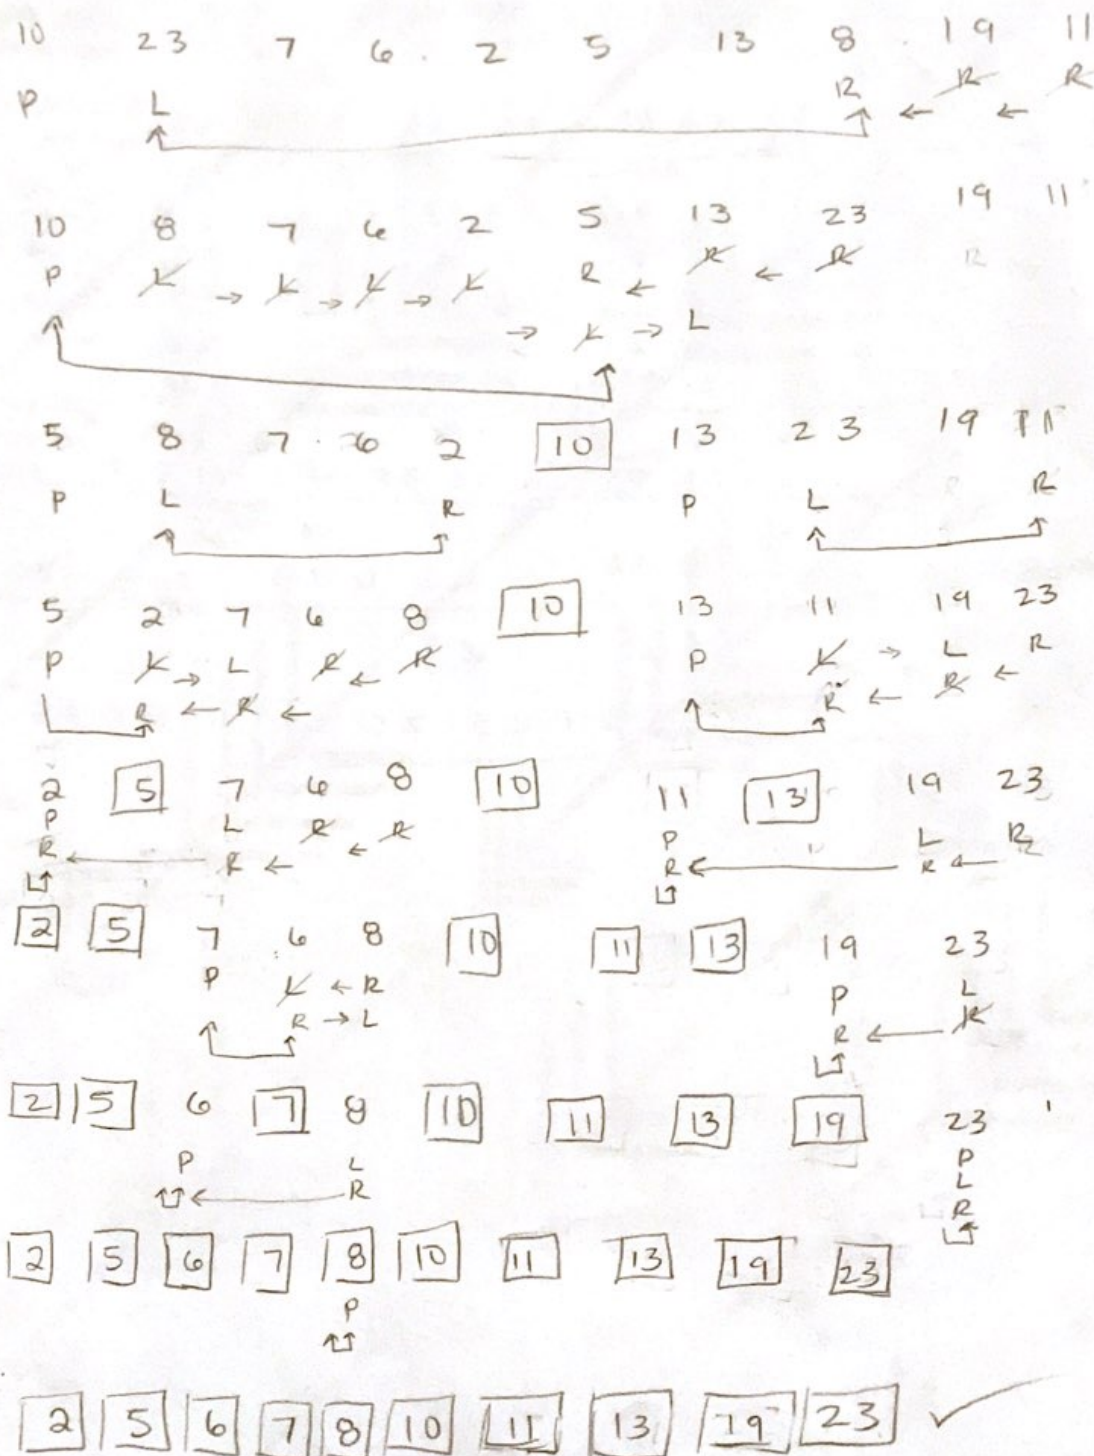 10 23 7 6 2 5 13 8 19 11
P L R R R
10 8 7 6 2 5 13 23 19 11
P L L L L R R R R
L L
5 8 7 6 2 10 13 23 19 11
P L R P L R
5 2 7 6 8 10 13 11 19 23
P L L R R P L L R
R R R R
2 5 7 6 8 10 11 13 19 23
P L R R P L R
R R R R
2 5 7 6 8 10 11 13 19 23
P L R P L
R L R R
2 5 6 7 8 10 11 13 19 23
P L P
R L
R
2 5 6 7 8 10 11 13 19 23
P
2 5 6 7 8 10 11 13 19 23